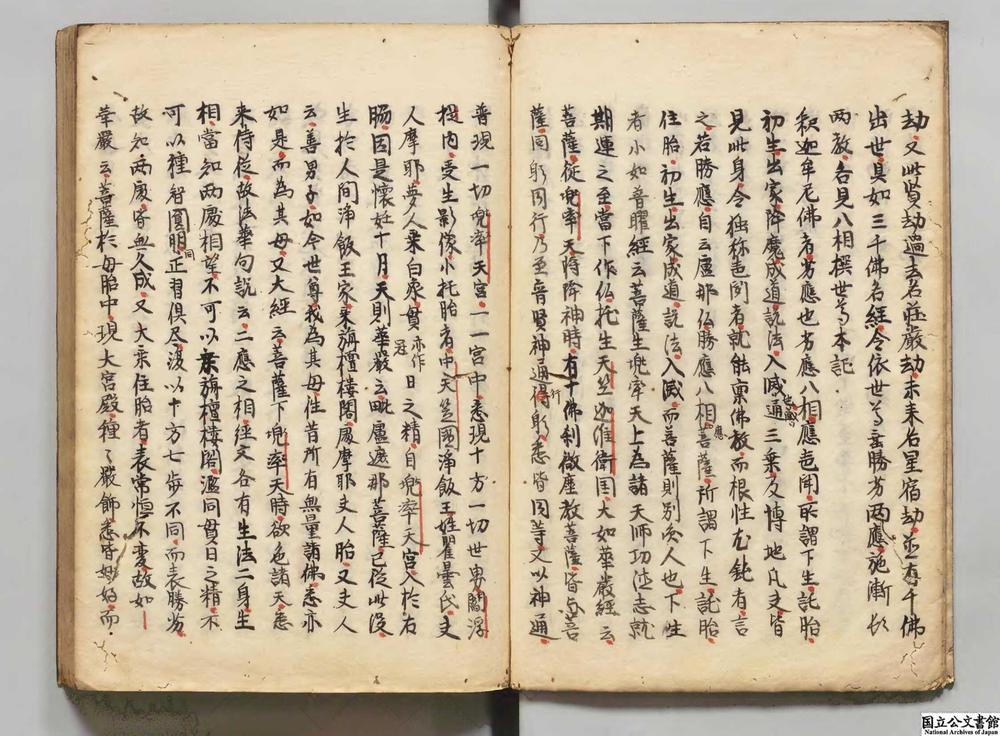 劫又此賢劫過去名莊嚴劫未来名星宿劫並有千佛
出世具如三千佛名經今依世尊垂勝劣兩應施漸頓
两教各見八相撰世尊本記
釈迦牟尼佛者劣應也劣應八相應声聞所謂下生託胎
初生出家降魔成道説法入滅通三乗及博地凡夫皆
見此身今独称声聞者就能稟佛教而根性尤鈍者言
之若勝應自云盧那仏勝應八相應菩薩所謂下生託胎
住胎初生出家成道説法入滅而菩薩則別次人也下生
者小如普曜經云菩薩生兜率天上為諸天師功
志就
期運之至當下作仏托生天竺迦維衛国大如華嚴經云
菩薩從兜率天将降神時有十佛刹微塵数菩薩皆与菩
薩同
同行乃至普賢神通
悉皆同等又以神通
普現一切兜率天宮一一宮中悉現十方一切世界閻浮
提内受生影像小托胎者中天竺國浄飯王姓瞿曇氏夫
人摩耶夢人乗白象貫亦作冠日之精自兜率天宮入於右
脇因是懐妊十月天則華嚴云毗盧遮那菩薩已從此後
生於人间浄飯王家乗旃檀樓閣處摩耶夫人胎又夫人
云善男子如今世尊我為其母往昔所有無量諸佛悉亦
如是而為其母又大經云菩薩下兜率天時欲色諸天悉
来侍従故法華句説云二應之相経文各有生法二身生
相當知两處相望不可以乗旃檀樓閣濫同貫日之精不
可以種智圓明同正習倶尽濫以十方七歩不同而表勝劣
故知两處
无久成又大乗住胎者表常恒不変故如
華嚴云菩薩於母胎中現大宮殿種々嚴飾悉皆妙好而
国立公文書館
National Archives of Japan